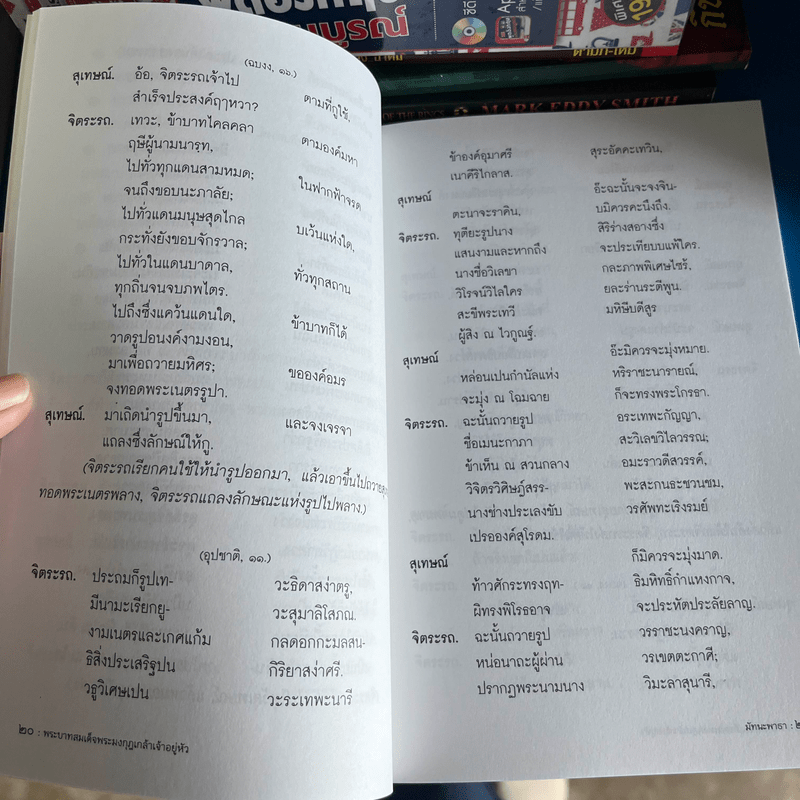 สมบูรณ์
MARK EDDY SMITH
(ฉบงง, ๑๖.)
สุเทษณ์. อ้อ, จิตระรถเจ้าไป ตามที่กูใช้,
สำเร็จประสงค์ฤๅหวา?
จิตระรถ. เทวะ, ข้าบาทไคลคลา ตามองค์มหา
ฤษีผู้นามนารุท,
ไปทั่วทุกแดนสามหมด; ในฟากฟ้าจรด
จนถึงขอบนะภาลัย;
ไปทั่วแดนมนุษสุดไกล บเว้นแห่งใด,
กระทั่งยังขอบจักรวาล;
ไปทั่วในแดนบาดาล, ทั่วทุกสถาน
ทุกถิ่นจนจบภพไตร.
ไปถึงซึ่งแคว้นแดนใด, ข้าบาทก็ได้
วาดรูปอนงค์งามงอน,
มาเพื่อถวายมหิศร; ขอองค์อมร
จงทอดพระเนตรรูปา.
สุเทษณ์. มาเถิดนำรูปขึ้นมา, และจงเจรจา
แถลงซึ่งลักษณ์ให้กู.
(จิตระรถเรียกคนใช้ให้นำรูปออกมา, แล้วเอาขึ้นไปถวาย
ทอดพระเนตรพลาง, จิตระรถแถลงลักษณะแห่งรูปไปพลาง.)
(อุปชาติ, ๑๑.)
จิตระรถ. ประถมก็รูปเท- วะธิดาสง่าตรู,
มีนามะเรียกยู- วะสุมาลิโสภณ.
งามเนตรและเกศแก้ม กลดอกกะมลสน-
ธิสิ่งประเสริฐปน กิริยาสง่าศรี.
วธูวิเศษเปน วะระเทพะนารี
๒๐ : พระบาทสมเด็จพระมงกุฎเกล้าเจ้าอยู่หัว
ข้าองค์อุมาศรี สุระอัคคะเทวิน,
เนาคีรีไกลาส.
สุเทษณ์ อ๊ะฉะนั้นจะจงจิน-
ตะนาจะราคิน, บมิควรคะนึงถึง.
จิตระรถ. ทุติยะรูปนาง สิริร่างสอางซึ่ง
แสนงามและหากถึง จะประเทียบบแพ้ใคร.
นางชื่อวิเลขา กละภาพพิเศษไซร้,
วิโรจน์วิไลใคร ยละร่านระตีพูน.
สะขีพระเทวี มหิษีบดีสูร
ผู้สิง ณ ไวกูณฐ์.
สุเทษณ์ อ๊ะมิควรจะมุ่งหมาย.
หล่อนเปนกำนัลแห่ง หริราชะนารายณ์,
จะมุ่ง ณ โฉมฉาย ก็จะทรงพระโกรธา.
จิตระรถ. ฉะนั้นถวายรูป อระเทพะกัญญา,
ชื่อเมนะกาภา สะวิเลขวิไลวรรณ;
ข้าเห็น ณ สวนกลาง อมะราวดีสวรรค์,
วิจิตรวิศิษฎ์สรร- พะสะกนธะชวนชม,
นางช่างประเลงขับ วรศัพทะเริงรมย์
เปรอองค์สุโรดม.
สุเทษณ์ ก็มิควรจะมุ่งมาด.
ท้าวศักระทรงฤท- ธิมหิทธิ์กำแหงกาจ,
ผิทรงพิโรธอาจ จะประหัตประลัยลาญ.
จิตระรถ. ฉะนั้นถวายรูป วรราชะนงคราญ,
หน่อนาถะผู้ผ่าน วรเขตตะกาศี;
ปรากฏพระนามนาง วิมะลาสุนารี,
มัทนะพาธา :